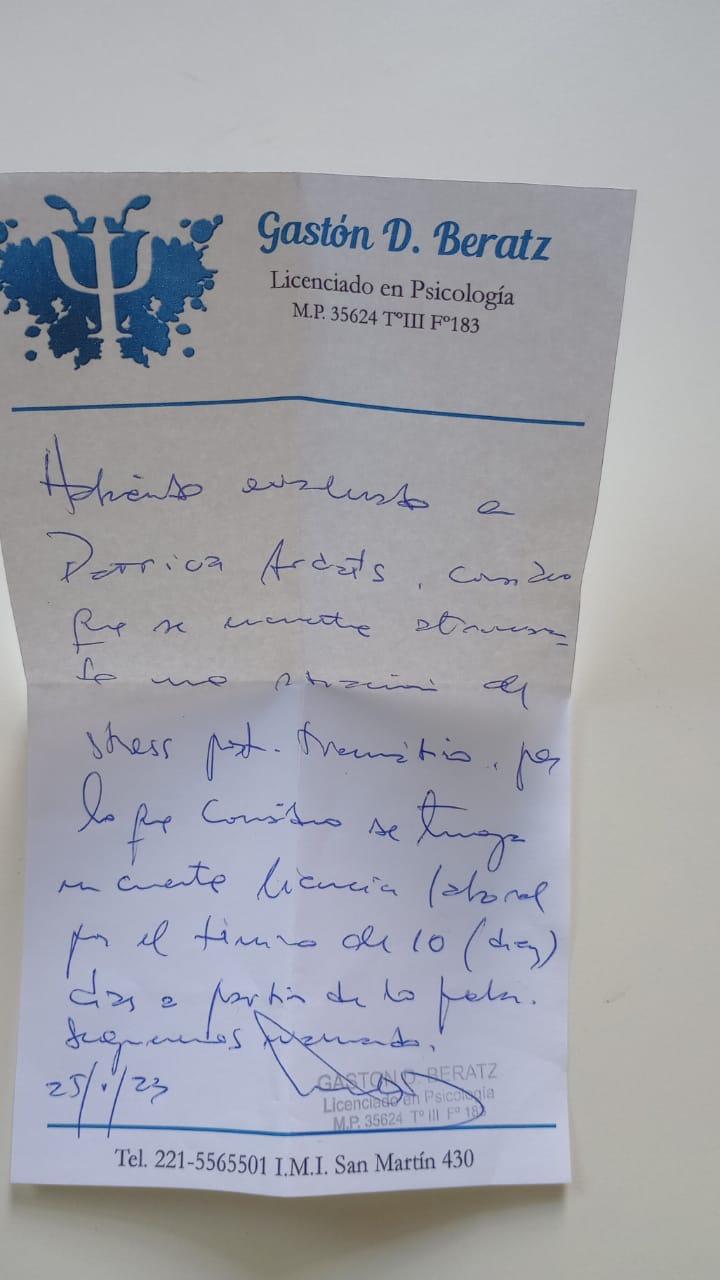 Gastón D. Beratz
Licenciado en Psicología
M.P. 35624 TºIII Fº183
Habiendo evaluado a
considero
que se encuentra atravesan
do una situación de
stress post. traumático, por
lo que considero se tenga
en cuenta licencia laboral
por el término de 10 (diez)
días a partir de la fecha.
Seguiremos evaluando.
25/ /23
GASTON D. BERATZ
Licenciado en Psicología
M.P. 35624 Tº III Fº 183
Tel. 221-5565501 I.M.I. San Martín 430